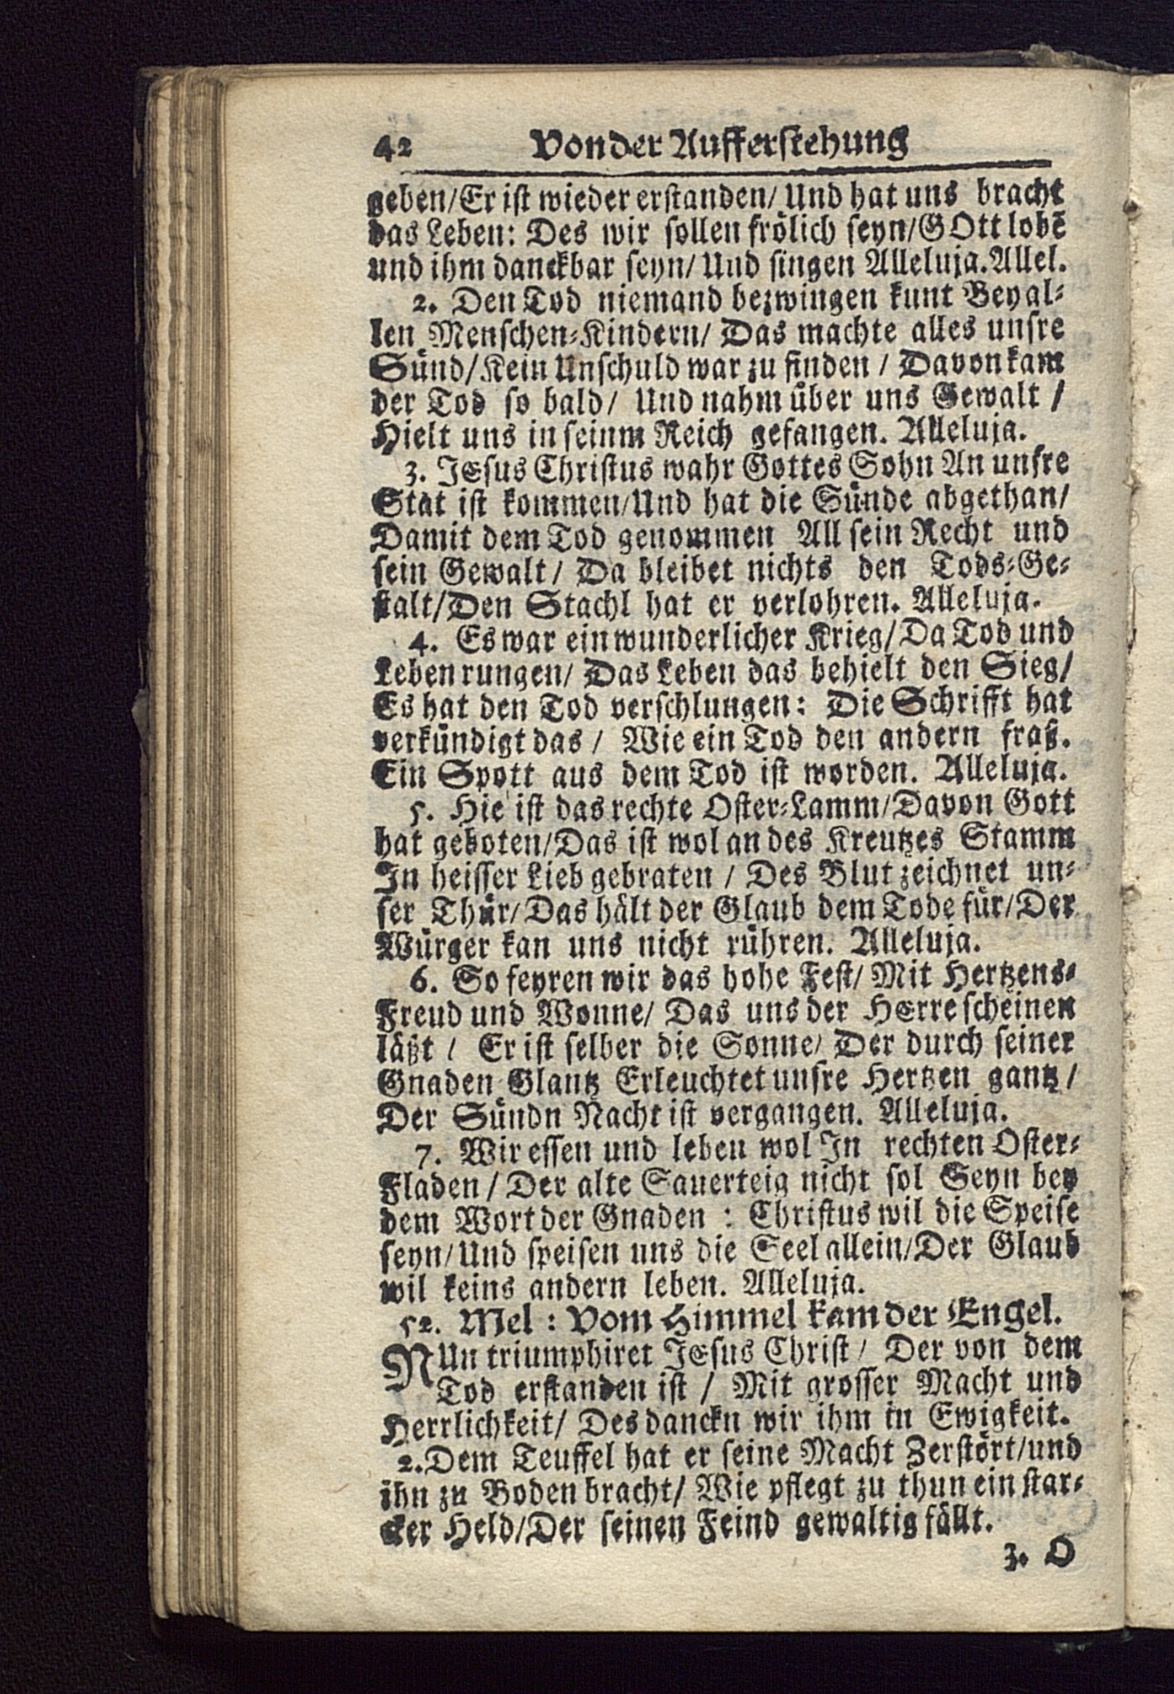 42 Von der Aufferstehung
geben/Er ist wieder erstanden/ Und hat uns bracht
das Leben: Des wir sollen frölich seyn/GOtt lobē
und ihm danckbar seyn/ Und singen Alleluja. Allel.
2. Den Tod niemand bezwingen kunt Bey al-
len Menschen-Kindern/ Das machte alles unsre
Sünd/Kein Unschuld war zu finden / Davon kam
der Tod so bald/ Und nahm über uns Gewalt /
Hielt uns in seinm Reich gefangen. Alleluja.
3. JEsus Christus wahr Gottes Sohn An unsre
Stat ist kommen/Und hat die Sünde abgethan/
Damit dem Tod genommen All sein Recht und
sein Gewalt/ Da bleibet nichts den Tods-Ge-
stalt/Den Stachl hat er verlohren. Alleluja.
4. Es war ein wunderlicher Krieg/Da Tod und
Leben rungen/ Das Leben das behielt den Sieg/
Es hat den Tod verschlungen: Die Schrifft hat
verkündigt das / Wie ein Tod den andern fraß.
Ein Spott aus dem Tod ist worden. Alleluja.
5. Hie ist das rechte Oster-Lamm/Davon Gott
hat geboten/Das ist wol an des Kreutzes Stamm
In heisser Lieb gebraten / Des Blut zeichnet un-
ser Thür/Das hält der Glaub dem Tode für/Der
Würger kan uns nicht rühren. Alleluja.
6. So feyren wir das hohe Fest/ Mit Hertzens-
Freud und Wonne/ Das uns der HErre scheinen
läßt / Er ist selber die Sonne/ Der durch seiner
Gnaden Glantz Erleuchtet unsre Hertzen gantz /
Der Sündn Nacht ist vergangen. Alleluja.
7. Wir essen und leben wol In rechten Oster-
Fladen / Der alte Sauerteig nicht sol Seyn bey
dem Wort der Gnaden : Christus wil die Speise
seyn/Und speisen uns die Seel allein/Der Glaub
wil keins andern leben. Alleluja.
52. Mel : Vom Himmel kam der Engel.
NUn triumphiret JEsus Christ / Der von dem
Tod erstanden ist / Mit grosser Macht und
Herrlichkeit/ Des danckn wir ihm in Ewigkeit.
2. Dem Teuffel hat er seine Macht Zerstört/und
ihn zu Boden bracht/ Wie pflegt zu thun ein star-
cker Held/Der seinen Feind gewaltig fällt.
3. O